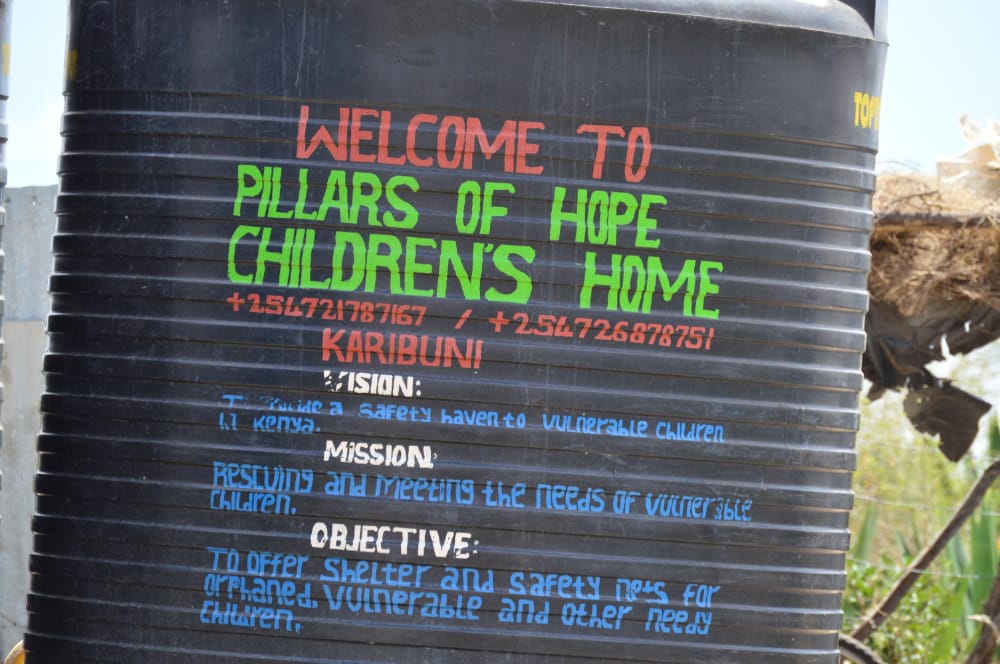 WELCOME TO
PILLARS OF HOPE
CHILDREN'S HOME
+254721787167 / +254726878751
KARIBUNI
VISION:
a safety haven to vulnerable children
Kenya.
MISSION:
Rescuing and meeting the needs of vulnerable
children.
OBJECTIVE:
TO OFFER Shelter and safety nets for
orphaned, vulnerable and other needy
children.